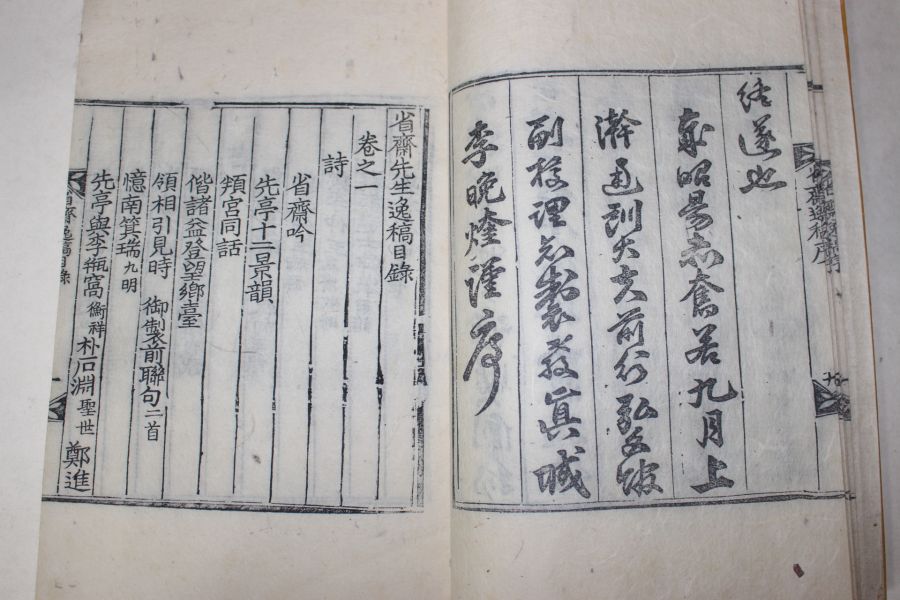 終遂也
歲昭昜赤奮若九月上
澣通訓大夫前行弘文館
副校理知製敎眞城
李晩煃謹序
省齋先生逸稿目錄
卷之一
詩
省齋吟
先亭十二景韻
頖宮同話
偕諸益登望鄉臺
領相引見時 御製前聯句二首
憶南箕瑞九明
先亭與李甁窩衡祥朴石淵聖世 鄭進
省齋逸稿目錄 一